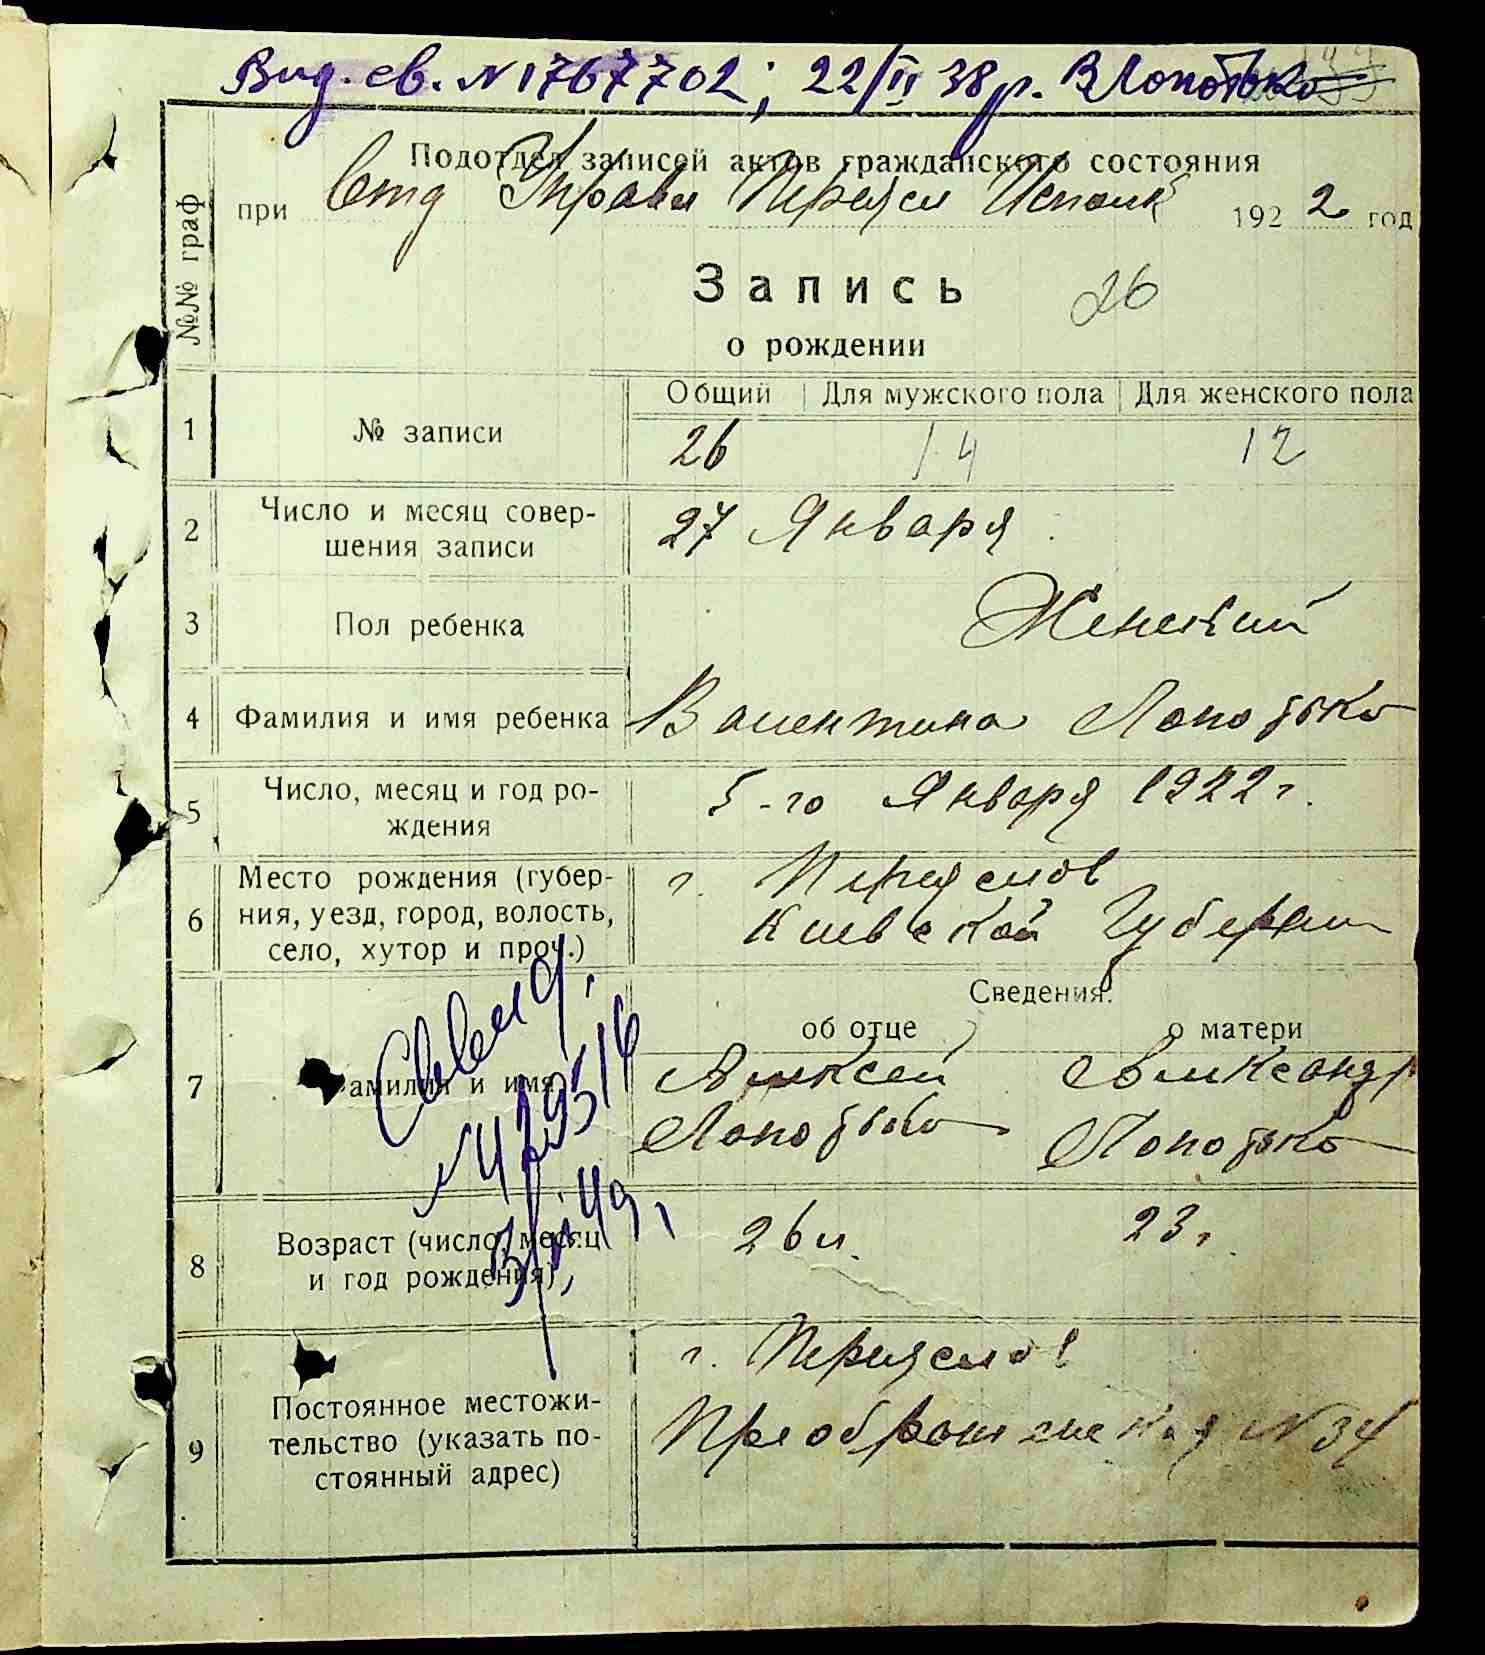 Вид. св. N 1767702; 22/II 38 р. В Лопотько
Подотдел записей актов гражданского состояния
при Отд Управл Переясл Исполк 1922 год
№№ граф
Запись
26
о рождении
Общий Для мужского пола Для женского пола
1 № записи 26 14 12
2 Число и месяц совер-
шения записи 27 Января
3 Пол ребенка Женский
4 Фамилия и имя ребенка Валентина Лопотько
5 Число, месяц и год ро-
ждения 5-го Января 1922 г.
6 Место рождения (губер-
ния, уезд, город, волость,
село, хутор и проч.)
г. Переяслов
Киевской Губернии
Сведения:
об отце о матери
7 Фамилия и имя
Алексей Александр
Лопотько Лопотько
8 Возраст (число, месяц
и год рождения) 26 л. 23 г.
9 Постоянное местожи-
тельство (указать по-
стоянный адрес)
г. Переяслов
Преображенская N 34